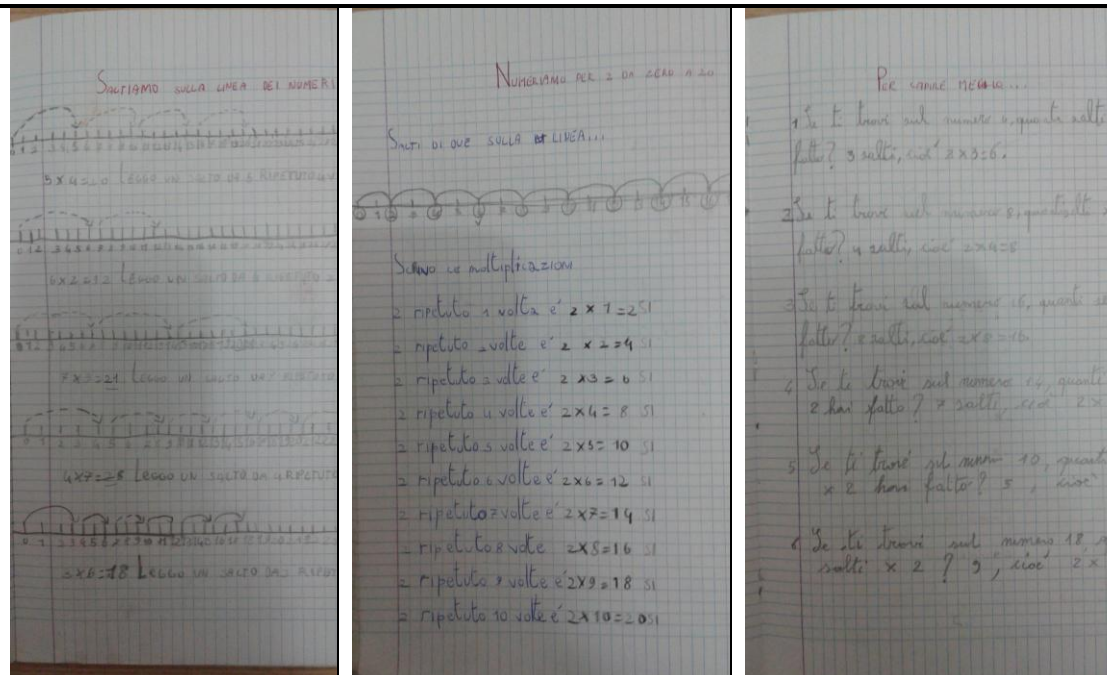 SALTIAMO SULLA LINEA DEI NUMERI
5x4=20 LEGGO UN SALTO DA 5 RIPETUTO 4
6x2=12 LEGGO UN SALTO DA 6 RIPETUTO 2
7x3=21 LEGGO UN SALTO DA 7 RIPETUTO
4x7=28 LEGGO UN SALTO DA 4 RIPETUTO
3x6=18 LEGGO UN SALTO DA 3
NUMERIAMO PER 2 DA ZERO A 20
SALTI DI DUE SULLA LINEA...
Scrivo le moltiplicazioni
2 ripetuto 1 volta e' 2 x 1=2 SI
2 ripetuto 2 volte e' 2 x 2=4 SI
2 ripetuto 3 volte e' 2x3= 6 SI
2 ripetuto 4 volte e' 2x4= 8 SI
2 ripetuto 5 volte e' 2x5= 10 SI
2 ripetuto 6 volte e' 2x6= 12 SI
2 ripetuto 7 volte e' 2x7= 14 SI
2 ripetuto 8 volte 2x8=16 SI
2 ripetuto 9 volte e' 2x9=18 SI
2 ripetuto 10 volte e' 2x10=20 SI
PER CAPIRE MEGLIO...
1 Se ti trovi sul numero 6, quanti salti
fatto? 3 salti, cioè 2x3=6.
2 Se ti trovi sul numero 8, quanti salti
fatto? 4 salti, cioè 2x4=8
3 Se ti trovi sul numero 16, quanti
fatto? 8 salti, cioè 2x8=16.
4 Se ti trovi sul numero 14, quanti
2 hai fatto? 7 salti, cioè 2x
5 Se ti trovi sul numero 10, quanti
x 2 hai fatto? 5, cioè
6 Se ti trovi sul numero 18,
salti x 2? 9, cioè 2x